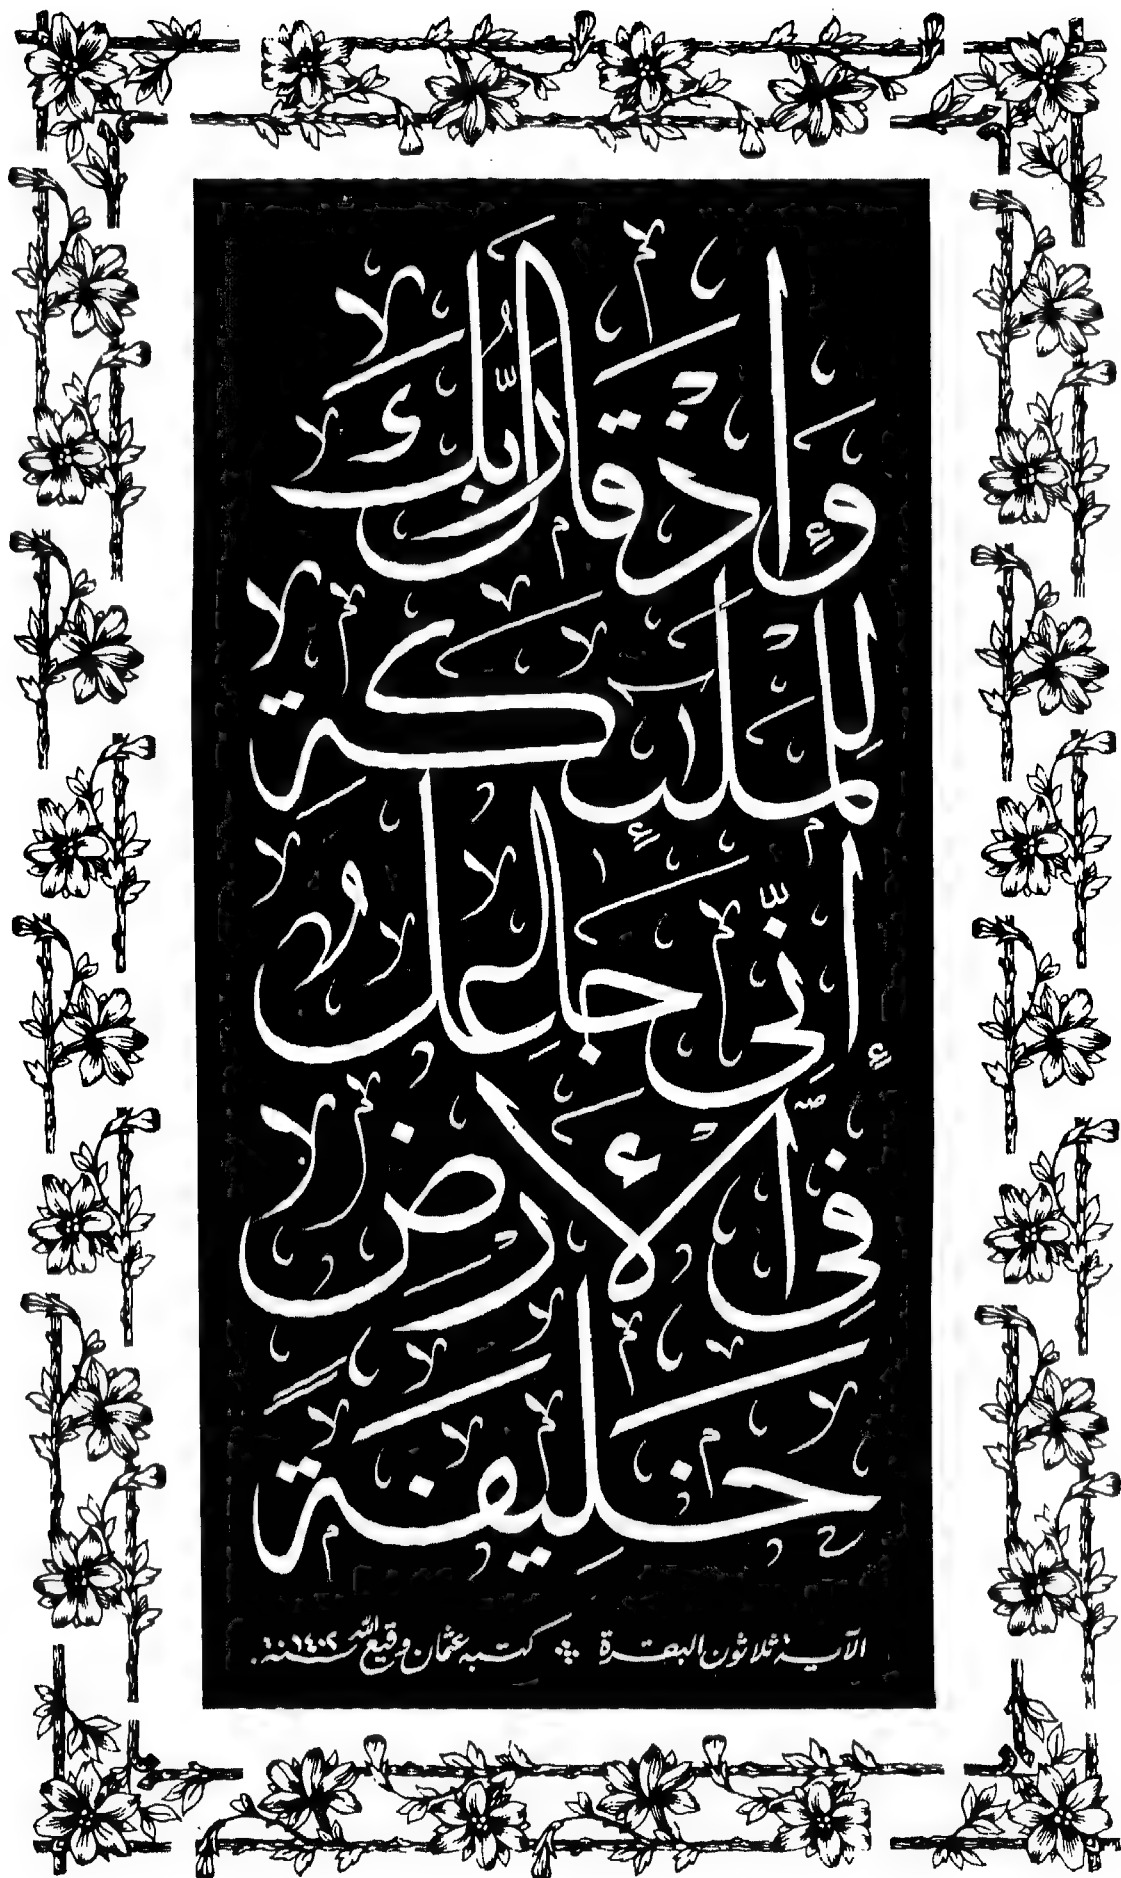 وَإِذْ قَالَ رَبُّكَ
لِلْمَلَٰٓئِكَةِ
إِنِّى جَاعِلٌ
فِى ٱلْأَرْضِ
خَلِيفَةً
الآية ثلاثون البقرة كتبه عثمان وقيع الله سنة ١٤٠٢